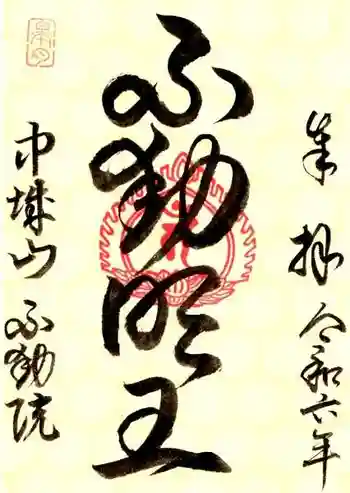 奉拝 令和六年
不動明王
城山 不動院